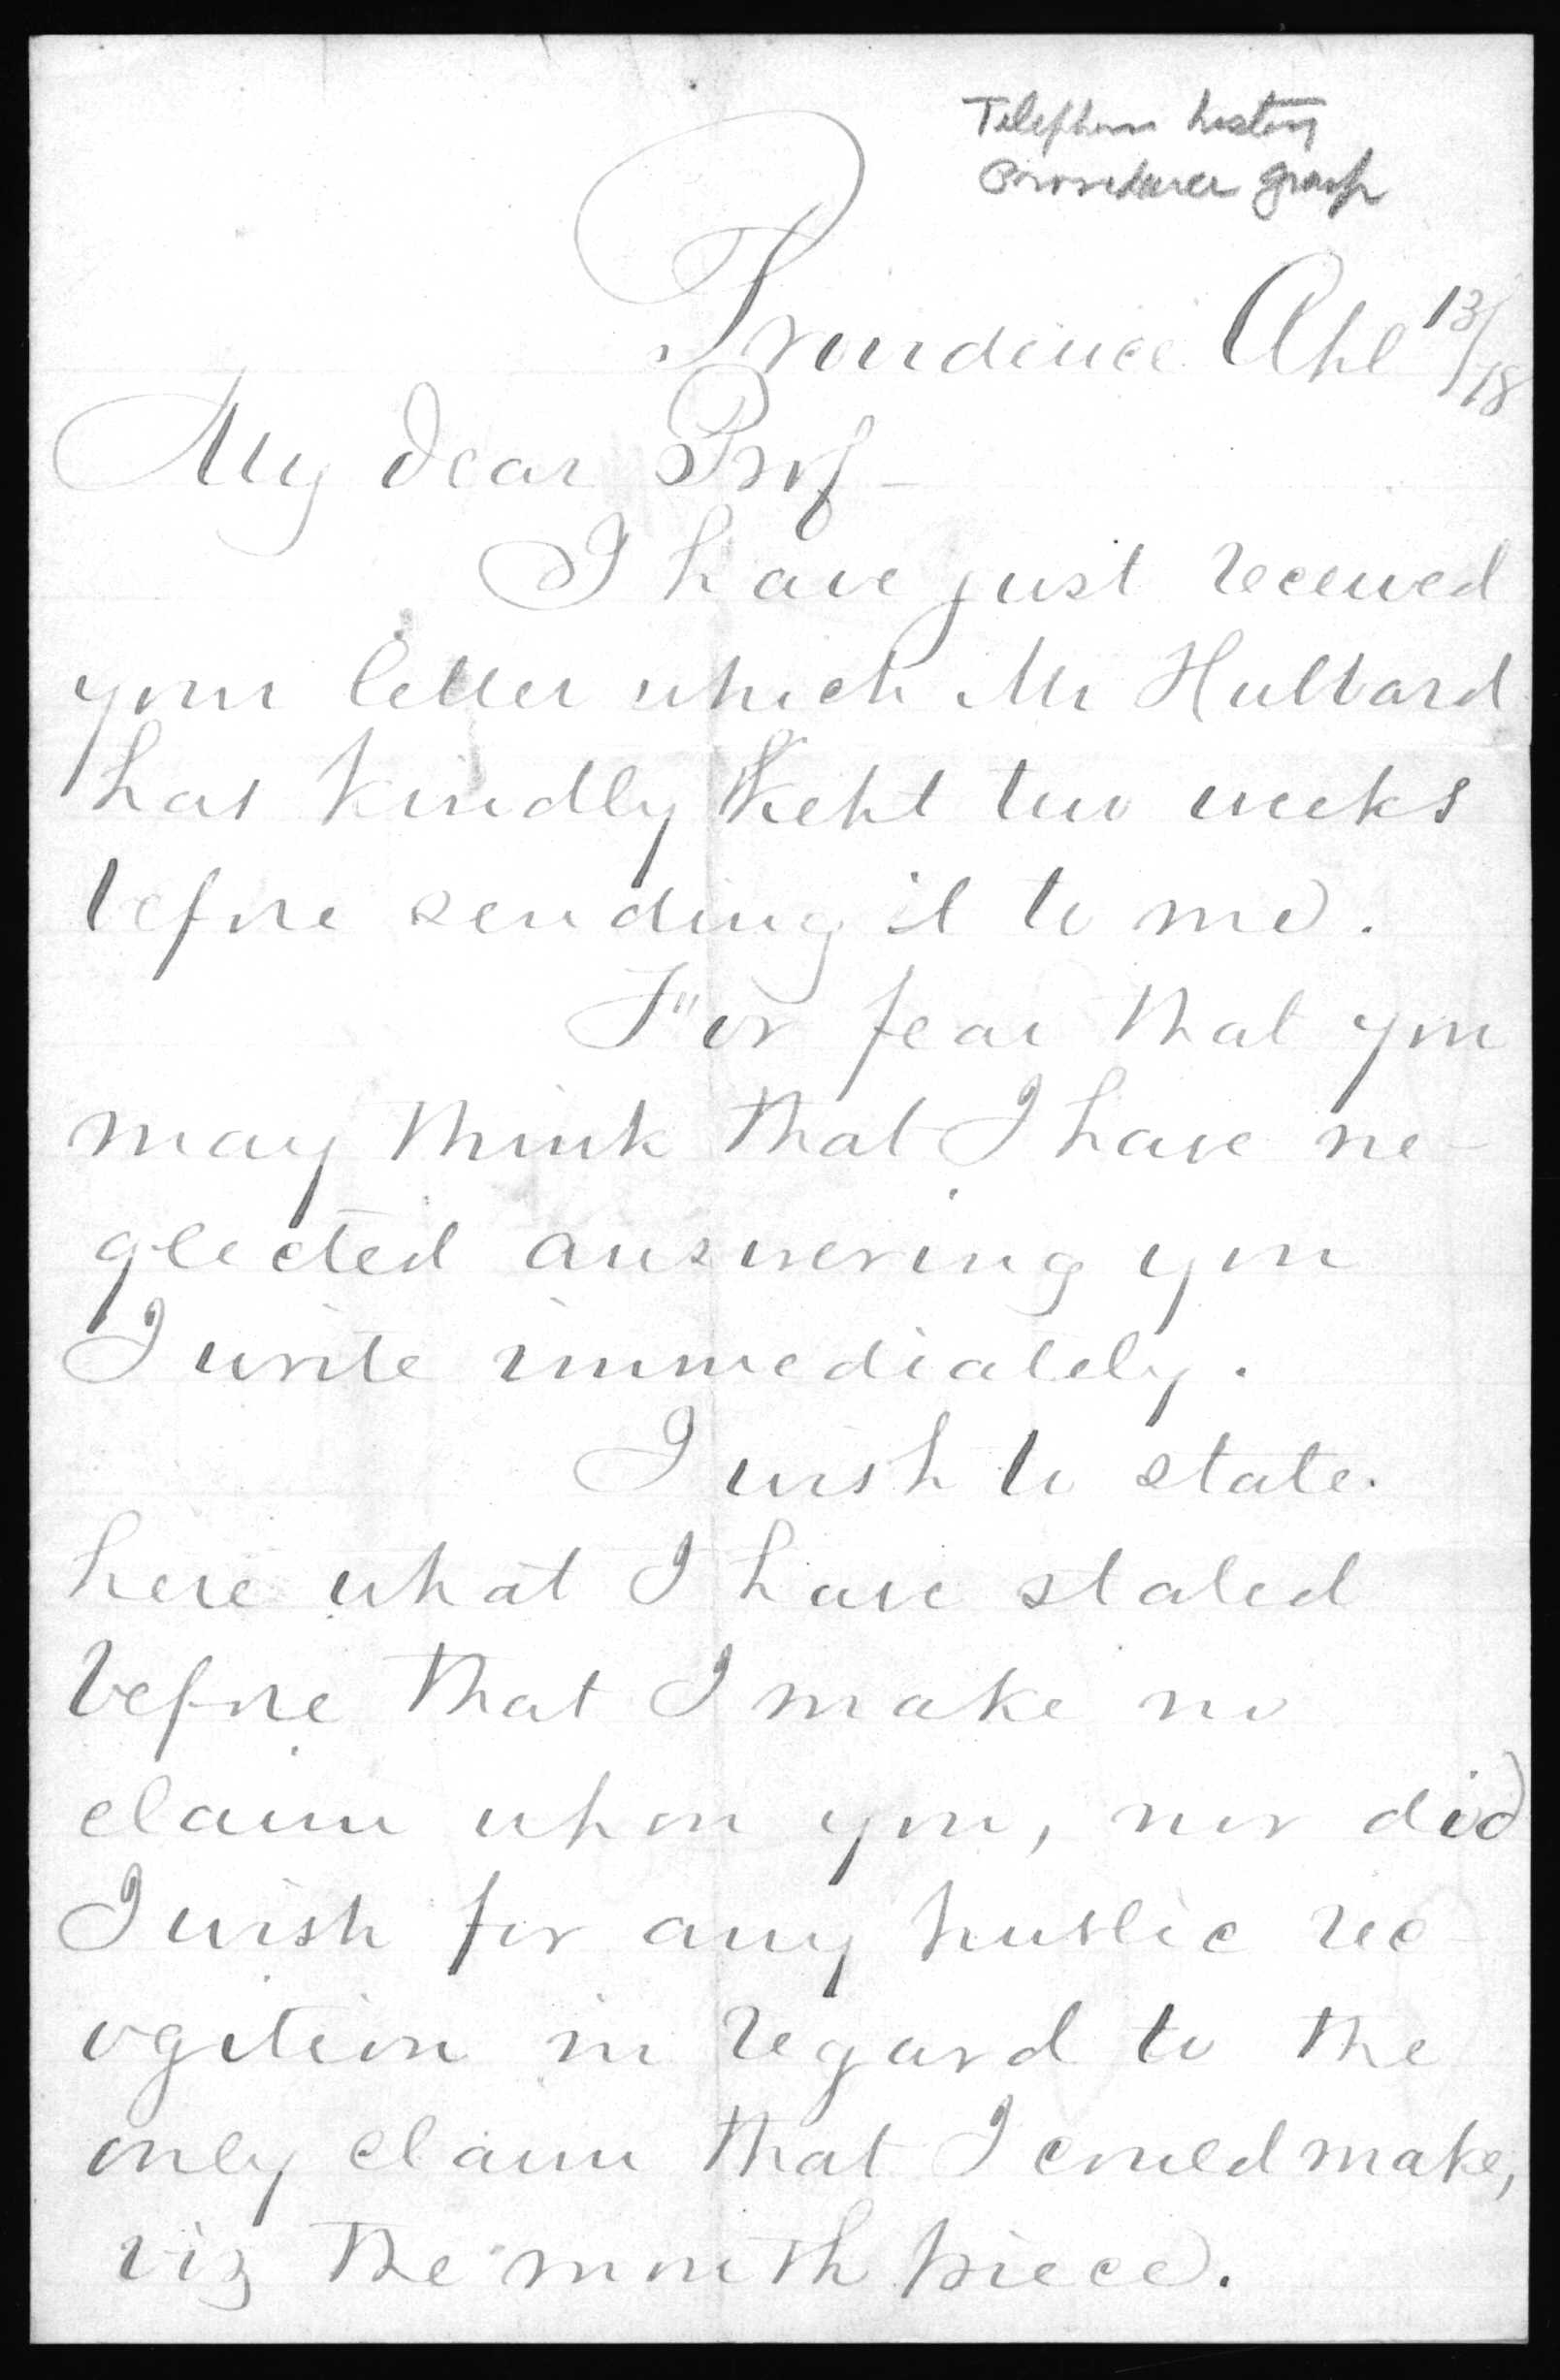 Telephone history
Providence group
Providence Apl 13/78
My dear Prof–
I have just received
your letter which Mr Hubbard
has kindly kept two weeks
before sending it to me.
For fear that you
may think that I have ne-
glected answering you
I write immediately.
I wish to state
here what I have stated
before that I make no
claim upon you, nor did
I wish for any public rec-
ogition in regard to the
only claim that I could make,
viz the mouth piece.